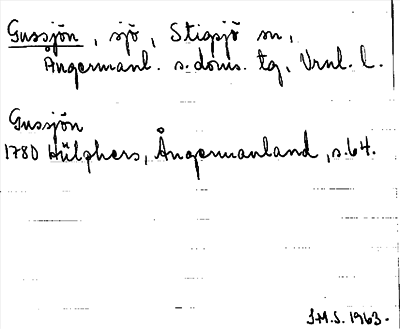 Gussjön, sjö, Stigsjö sn,
Ångermanl. s. doms. tg, Vrnl. l.
Gussjön
1780 Hülphers, Ångermanland, s. 64.
I.M.S. 1963.